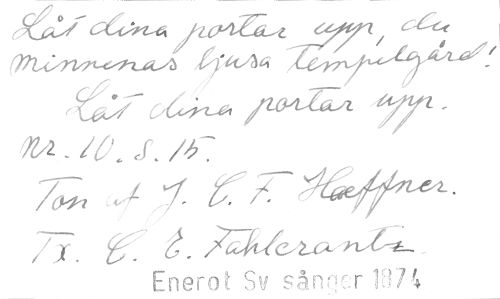 Låt dina portar upp, du
minnenas ljusa tempelgård!
Låt dina portar upp.
Nr. 10. s. 15.
Ton af J. C. F. Haeffner.
Tx. C. E. Fahlcrantz.
Enerot Sv sånger 1874